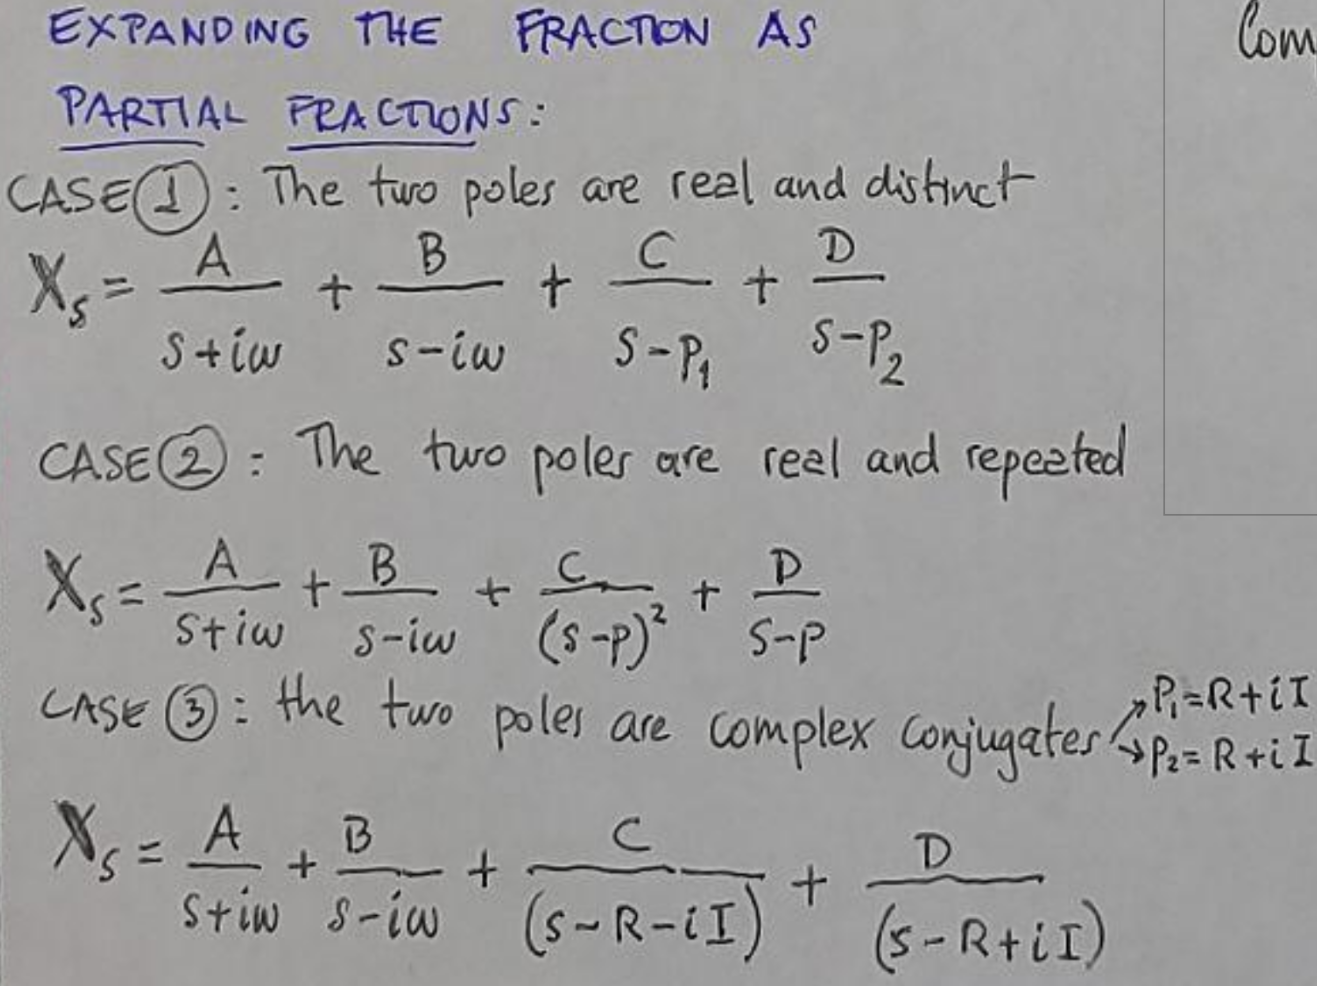 EXPANDING THE FRACTION AS
PARTIAL FRACTIONS:
Com
CASE ①: The two poles are real and distinct
X_s = A/(s+iω) + B/(s-iω) + C/(s-P₁) + D/(s-P₂)
CASE ②: The two poles are real and repeated
X_s = A/(s+iω) + B/(s-iω) + C/(s-P)² + D/(s-P)
CASE ③: the two poles are complex conjugates → P₁=R+iI
→ P₂=R+iI
X_s = A/(s+iω) + B/(s-iω) + C/(s-R-iI) + D/(s-R+iI)